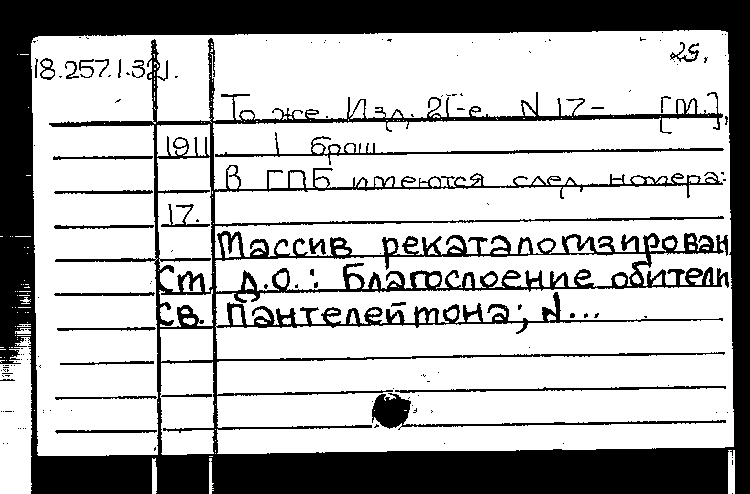 29.
18.257.1.321.
То же. Изд. 21-е. N 17- [М.],
1911 1 брош.
В ГПБ имеются след. номера:
17.
Массив рекаталогизирован
См. Д.О.: Благослоение обители
Св. Пантелеймона; N...